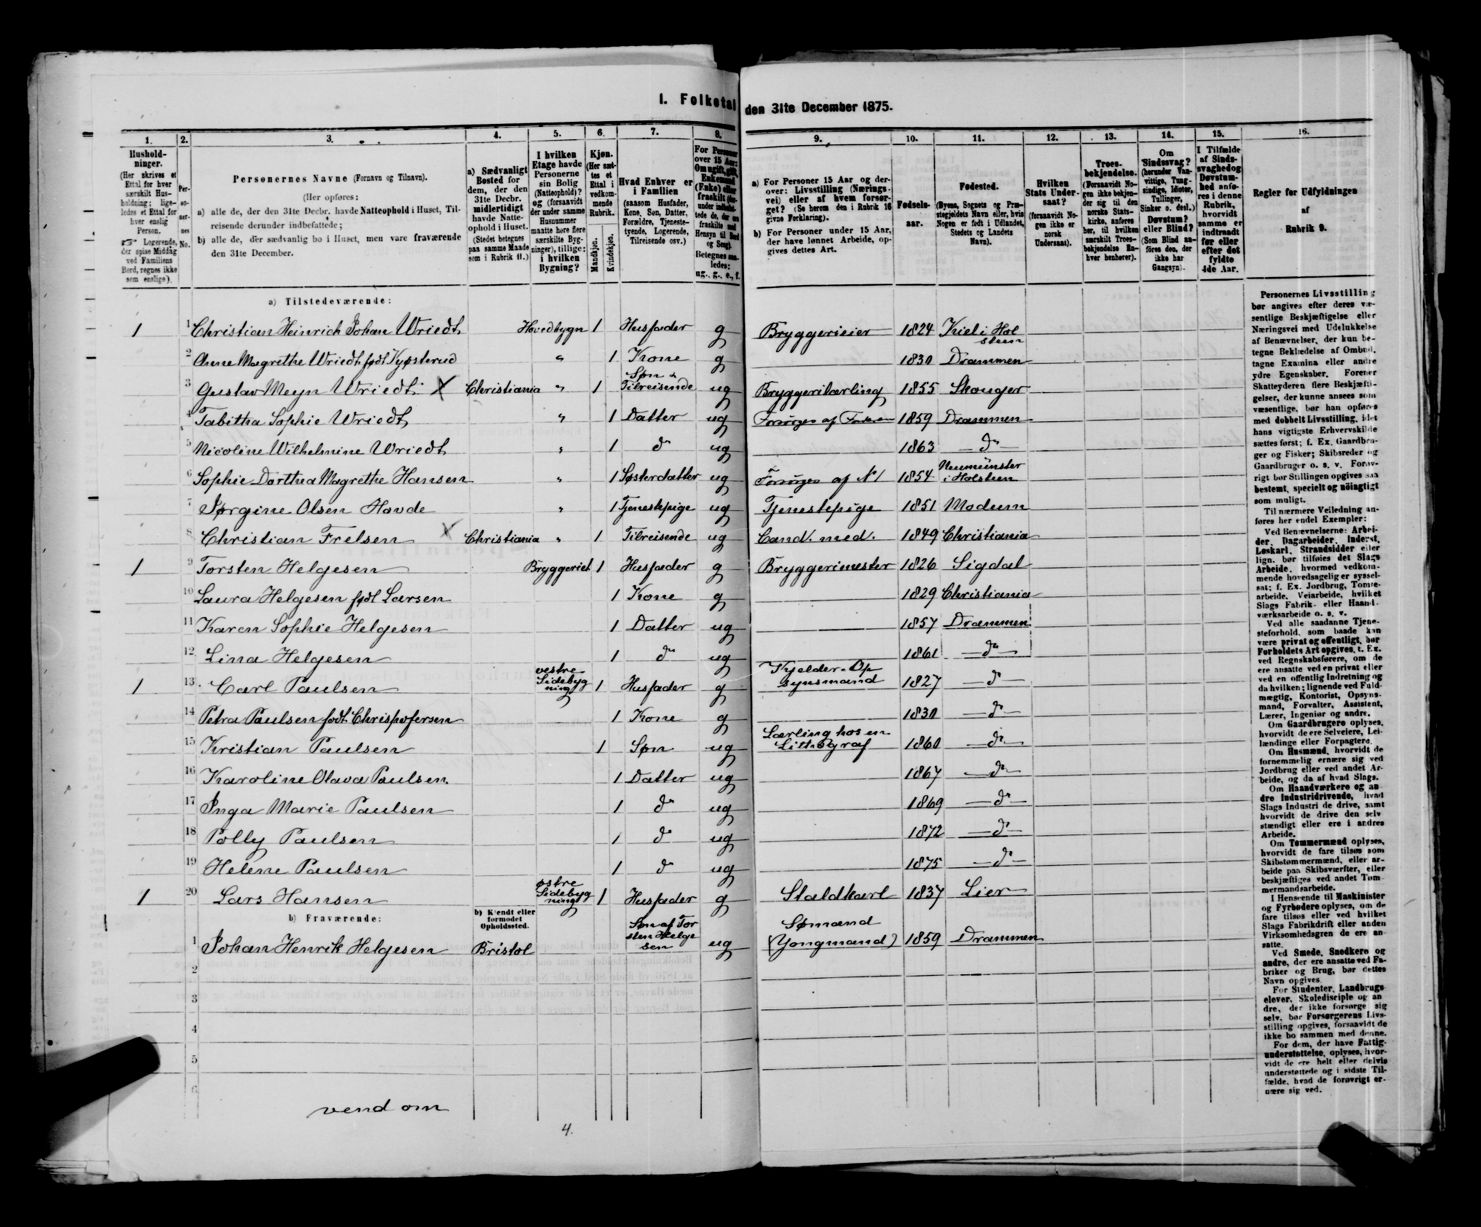 I. Folketal den 31te December 1875.
1. 2. 3. 4. 5. 6. 7. 8. 9. 10. 11. 12. 13. 14. 15. 16.
Hushold-
ninger.
(Her skrives et
Ettal for hver
særskilt Hus-
holdning; lige-
ledes et Ettal for
hver enslig
Person.
☞ Logerende,
der spise Middag
ved Familiens
Bord, regnes ikke
som enslige).
Personernes Navne (Fornavn og Tilnavn).
(Her opføres:
a) alle de, der den 31te Decbr. havde Natteophold i Huset, Til-
reisende derunder indbefattede;
b) alle de, der sædvanlig bo i Huset, men vare fraværende
den 31te December.
a) Sædvanligt
Bosted for
dem, der den
31te Decbr.
midlertidigt
havde Natte-
ophold i Huset.
(Stedet betegnes
paa samme Maade
som i Rubrik 11.)
I hvilken
Etage havde
Personerne
sin Bolig
(Natteophold)?
og (forsaavidt
der under samme
Husnummer
maatte høre flere
særskilte Byg-
ninger), tillige:
i hvilken
Bygning?
Kjøn.
(Her sæt-
tes et
Ettal i
vedkom-
mende
Rubrik.
Mandkjøn.
Kvindekjøn.
Hvad Enhver er
i Familien
(saasom Husfader,
Kone, Søn, Datter,
Forældre, Tjeneste-
tyende, Logerende,
Tilreisende osv.)
For Personer
over 15 Aar:
Om ugift, gift,
Enkemand
(Enke) eller
fraskilt
Betegnes saa-
ledes:
ug., g., e., f.
a) For Personer 15 Aar og der-
over: Livsstilling (Nærings-
vei) eller af hvem forsør-
get? (Se herom den i Rubrik 16
givne Forklaring).
b) For Personer under 15 Aar,
der have lønnet Arbeide, op-
gives dettes Art.
Fødsels-
aar.
Fødested.
(Byens, Sognets og Præ-
stegjeldets Navn eller, hvis
Nogen er født i Udlandet,
Stedets og Landets
Navn).
Hvilken
Stats Under-
saat?
(forsaavidt No-
gen ikke er
norsk
Undersaat).
Troes-
bekjendelse.
(Forsaavidt No-
gen ikke bekjen-
der sig til den
norske Stats-
kirke, anføres
her, til hvilken
særskilt Troes-
bekjendelse En-
hver henhører).
Om
Sindssvag?
(herunder Van-
vittige, Tung-
sindige, Idioter,
Tullinger,
Sinker o. desl.)
Døvstum?
eller Blind?
(Som Blind an-
føres den, der
ikke har
Gangsyn).
I Tilfælde
af Sinds-
svaghed og
Døvstum-
hed anfø-
res i denne
Rubrik,
hvorvidt
samme er
indtraadt
før eller
efter det
fyldte
4de Aar.
Regler for Udfyldningen
af
Rubrik 9.
a) Tilstedeværende:
1 1 Christian Heinrich Johan Wriedt Hovedbygn 1 Husfader g Bryggerieier 1824 Kiel i Hol
stein
2 Anne Magrethe Wriedt født Kyøsterud " 1 Kone g 1830 Drammen
3 Gustav Meyn Wriedt X Christiania " 1 Søn & Tilreisende ug Bryggerilærling 1855 Skouger
4 Tabitha Sophie Wriedt " 1 Datter ug Forsørges af Faderen 1859 Drammen
5 Nicoline Wilhelmine Wriedt " 1 do ug 1863 do
6 Sophie Dorthea Magrethe Hansen " 1 Søsterdatter ug Forsørges af No 1 1854 Neumünster
i Holstein
7 Jørgine Olsen Havde " 1 Tjenestepige ug Tjenestepige 1851 Modum
8 Christian Frelsen X Christiania " 1 Tilreisende ug Cand. med. 1849 Christiania
1 9 Torsten Helgesen Bryggeriet 1 Husfader g Bryggerimester 1826 Sigdal
10 Laura Helgesen født Larsen 1 Kone g 1829 Christiania
11 Karen Sophie Helgesen 1 Datter ug 1857 Drammen
12 Lina Helgesen 1 do ug 1861 do
1 13 Carl Paulsen vestre Sidebyg ning 1 Husfader g Kjelder-Op
synsmand 1827 do
14 Petra Paulsen født Christofersen 1 Kone g 1830 do
15 Kristian Paulsen 1 Søn ug Lærling hos en
Lithograf 1860 do
16 Karoline Olava Paulsen 1 Datter ug 1867 do
17 Inga Marie Paulsen 1 do ug 1869 do
18 Polly Paulsen 1 do ug 1872 do
19 Helene Paulsen 1 do ug 1875 do
1 20 Lars Hansen østre Sidebyg ning 1 Husfader g Staldkarl 1837 Lier
b) Fraværende:
b) Kjendt eller
formodet
Opholdssted.
1 Johan Henrik Helgesen Bristol Søn af Tor
sten Helge
sen ug Sømand
(Yongmand) 1859 Drammen
2
3
4
5
6
vend om
4.
Personernes Livsstilling
bør angives efter deres væ-
sentlige Beskjæftigelse eller
Næringsvei med Udelukkelse
af Benævnelser, der kun be-
tegne Beklædelse af Ombud,
tagne Examina eller andre
ydre Egenskaber. Forener
Skatteyderen flere Beskjæfti-
gelser, der kunne ansees som
væsentlige, bør han opføres
med dobbelt Livsstilling, idet
hans vigtigste Erhvervskilde
sættes først; f. Ex. Gaardbru-
ger og Fisker; Skibsreder og
Gaardbruger o. s. v. Forøv-
rigt bør Stillingen opgives saa
bestemt, specielt og nöiagtigt
som muligt.
Til nærmere Veiledning an-
føres her endel Exempler:
Ved Benævnelserne: Arbei-
der, Dagarbeider, Inderst,
Løskarl, Strandsidder eller
lign. bør tilføies det Slags
Arbeide, hvormed vedkom-
mende hovedsagelig er syssel-
sat; f. Ex. Jordbrug, Tomte-
arbeide, Veiarbeide, hvilket
Slags Fabrik- eller Haand-
værksarbeide o. s. v.
Ved alle saadanne Tjene-
steforhold, som baade kan
være privat og offentligt, bør
Forholdets Art opgives, t. Ex.
ved Regnskabsførere, om de
ere ansatte ved en privat eller
ved en offentlig Indretning og
da hvilken; lignende ved Fuld-
mægtig, Kontorist, Opsyns-
mand, Forvalter, Assistent,
Lærer, Ingeniør og andre.
Om Gaardbrugere oplyses,
hvorvidt de ere Selveiere, Lei-
lændinge eller Forpagtere.
Om Husmænd, hvorvidt de
fornemmelig ernære sig ved
Jordbrug eller ved andet Ar-
beide, og da af hvad Slags.
Om Haandværkere og an-
dre Industridrivende, hvad
Slags Industri de drive, samt
hvorvidt de drive den selv-
stændigt eller ere i andres
Arbeide.
Om Tømmermænd oplyses,
hvorvidt de fare tilsøs som
Skibstømmermænd, eller ar-
beide paa Skibsværfter, eller
beskjæftiges ved andet Tøm-
mermandsarbeide.
I Henseende til Maskinister
og Fyrbødere oplyses, om de
fare tilsøs eller ved hvilket
Slags Fabrikdrift eller anden
Virksomhedsgren de ere an-
satte.
Ved Smede, Snedkere og
andre, der ere ansatte ved Fa-
briker og Brug, bør dettes
Navn opgives.
For Studenter, Landbrugs-
elever, Skoledisciple og an-
dre, der ikke forsørge sig
selv, bør Forsørgerens Livs-
stilling opgives, forsaavidt de
ikke bo sammen med denne.
For dem, der have Fattig-
understøttelse, oplyses, hvor-
vidt de ere helt eller delvis
understøttede og i sidste Til-
fælde, hvad de forøvrigt er-
nære sig ved.